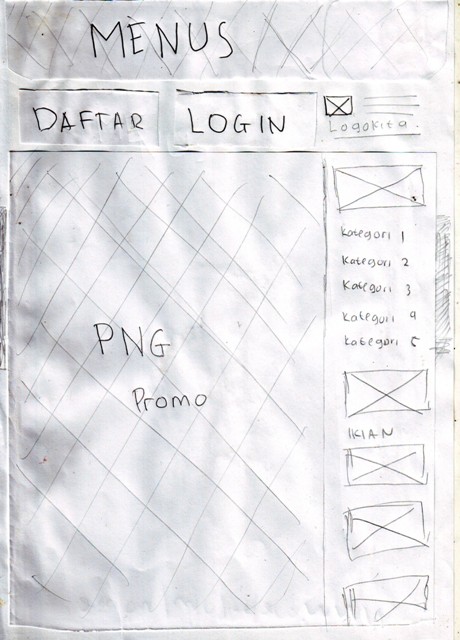 MENUS
DAFTAR
LOGIN
Logokita.
PNG
Promo
Kategori 1
Kategori 2
Kategori 3
Kategori 4
Kategori 5
IKLAN